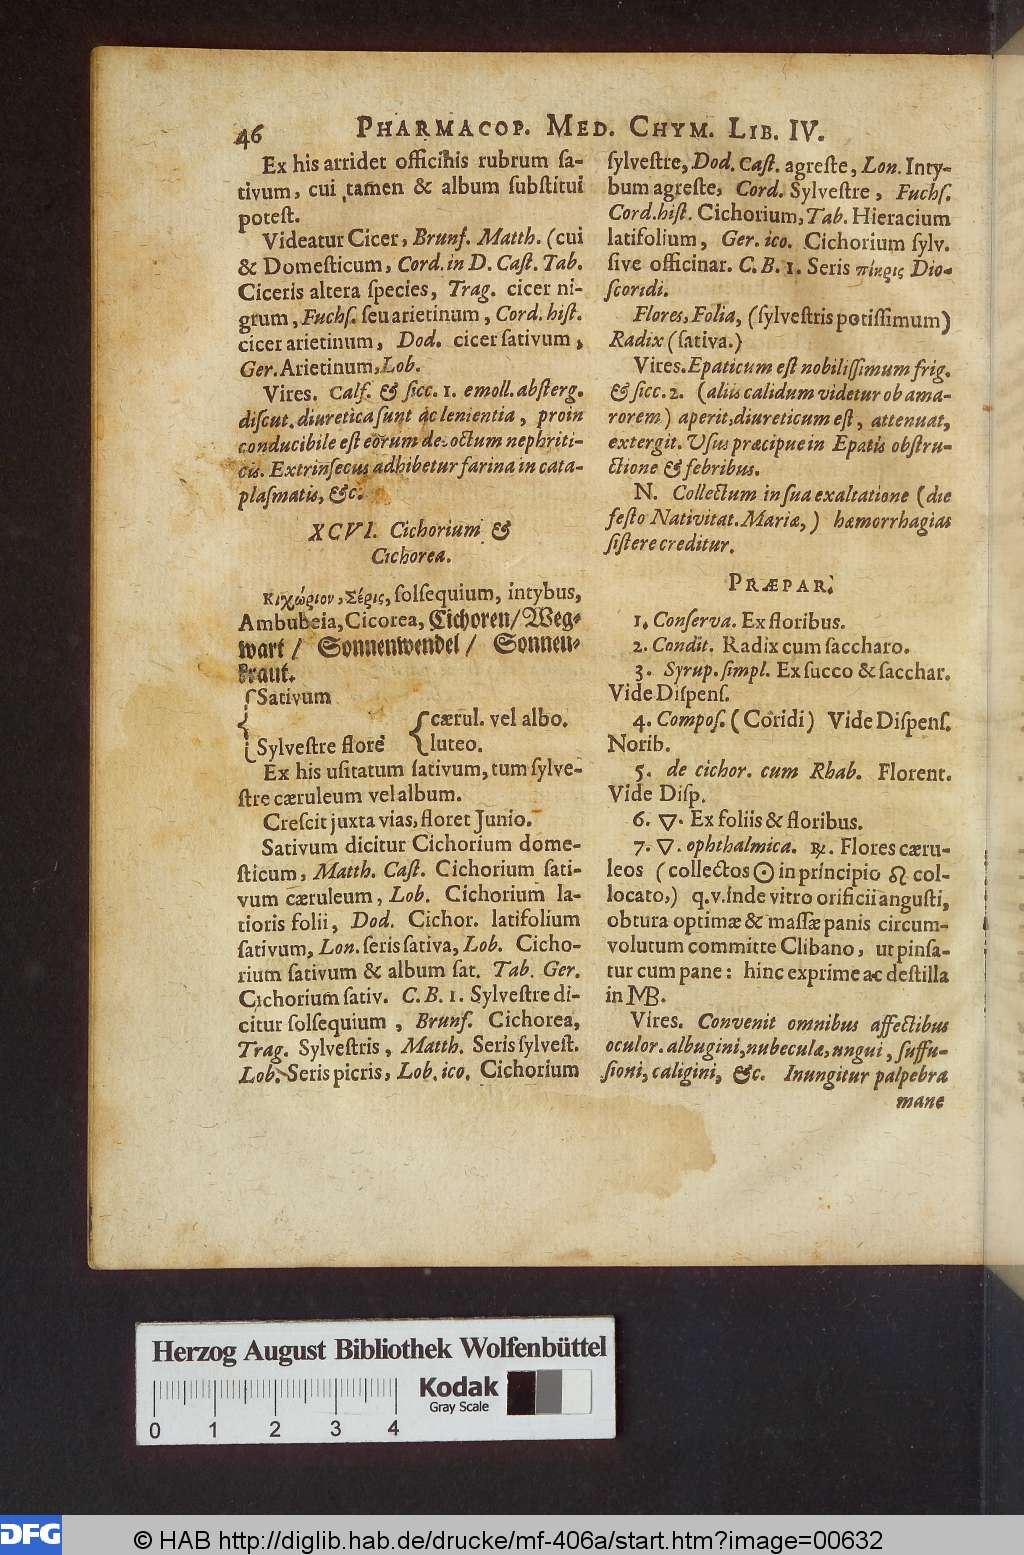 46 PHARMACOP. MED. CHYM. LIB. IV.
Ex his arridet officinis rubrum ſa-
tivum, cui tamen & album ſubſtitui
poteſt.
Videatur Cicer, Brunf. Matth. (cui
& Domeſticum, Cord. in D. Caſt. Tab.
Ciceris altera ſpecies, Trag. cicer ni-
grum, Fuchſ. ſeu arietinum, Cord. hiſt.
cicer arietinum, Dod. cicer ſativum,
Ger. Arietinum, Lob.
Vires. Calf. & ſicc. 1. emoll. abſterg.
diſcut. diuretica ſunt ac lenientia, proin
conducibile eſt eorum decoctum nephriti-
cis. Extrinſecus adhibetur farina in cata-
plaſmatis, &c.
XCVI. Cichorium &
Cichorea.
Κιχώριον, Σέρις, ſolſequium, intybus,
Ambubeia, Cicorea, Cichoren/ Weg-
wart / Sonnenwendel / Sonnen-
kraut.
Sativum
Sylveſtre flore { cærul. vel albo.
luteo.
Ex his uſitatum ſativum, tum ſylve-
ſtre cæruleum vel album.
Creſcit juxta vias, floret Junio.
Sativum dicitur Cichorium dome-
ſticum, Matth. Caſt. Cichorium ſati-
vum cæruleum, Lob. Cichorium la-
tioris folii, Dod. Cichor. latifolium
ſativum, Lon. ſeris ſativa, Lob. Cicho-
rium ſativum & album ſat. Tab. Ger.
Cichorium ſativ. C. B. 1. Sylveſtre di-
citur ſolſequium, Brunf. Cichorea,
Trag. Sylveſtris, Matth. Seris ſylveſt.
Lob. Seris picris, Lob. ico. Cichorium
ſylveſtre, Dod. Caſt. agreſte, Lon. Inty-
bum agreſte, Cord. Sylveſtre, Fuchſ.
Cord. hiſt. Cichorium, Tab. Hieracium
latifolium, Ger. ico. Cichorium ſylv.
ſive officinar. C. B. 1. Seris πίκρις Dio-
ſcoridi.
Flores, Folia, (ſylveſtris potiſſimum)
Radix (ſativa.)
Vires. Epaticum eſt nobiliſſimum frig.
& ſicc. 2. (aliis calidum videtur ob ama-
rorem) aperit, diureticum eſt, attenuat,
extergit. Uſus præcipue in Epatis obſtru-
ctione & febribus.
N. Collectum in ſua exaltatione (die
feſto Nativitat. Mariæ,) hæmorrhagias
ſiſtere creditur.
PRÆPAR.
1. Conſerva. Ex floribus.
2. Condit. Radix cum ſaccharo.
3. Syrup. ſimpl. Ex ſucco & ſacchar.
Vide Diſpenſ.
4. Compoſ. (Coridi) Vide Diſpenſ.
Norib.
5. de cichor. cum Rhab. Florent.
Vide Diſp.
6. ▽. Ex foliis & floribus.
7. ▽. ophthalmica. ℞. Flores cæru-
leos (collectos ☉ in principio ♌ col-
locato,) q.v. Inde vitro orificii anguſti,
obtura optimæ & maſſæ panis circum-
volutum committe Clibano, ut pinſa-
tur cum pane: hinc exprime ac deſtilla
in MB.
Vires. Convenit omnibus affectibus
oculor. albugini, nubeculæ, ungui, ſuffu-
ſioni, caligini, &c. Inungitur palpebra
mane
Herzog August Bibliothek Wolfenbüttel
Kodak
Gray Scale
0 1 2 3 4
DFG
© HAB http://diglib.hab.de/drucke/mf-406a/start.htm?image=00632